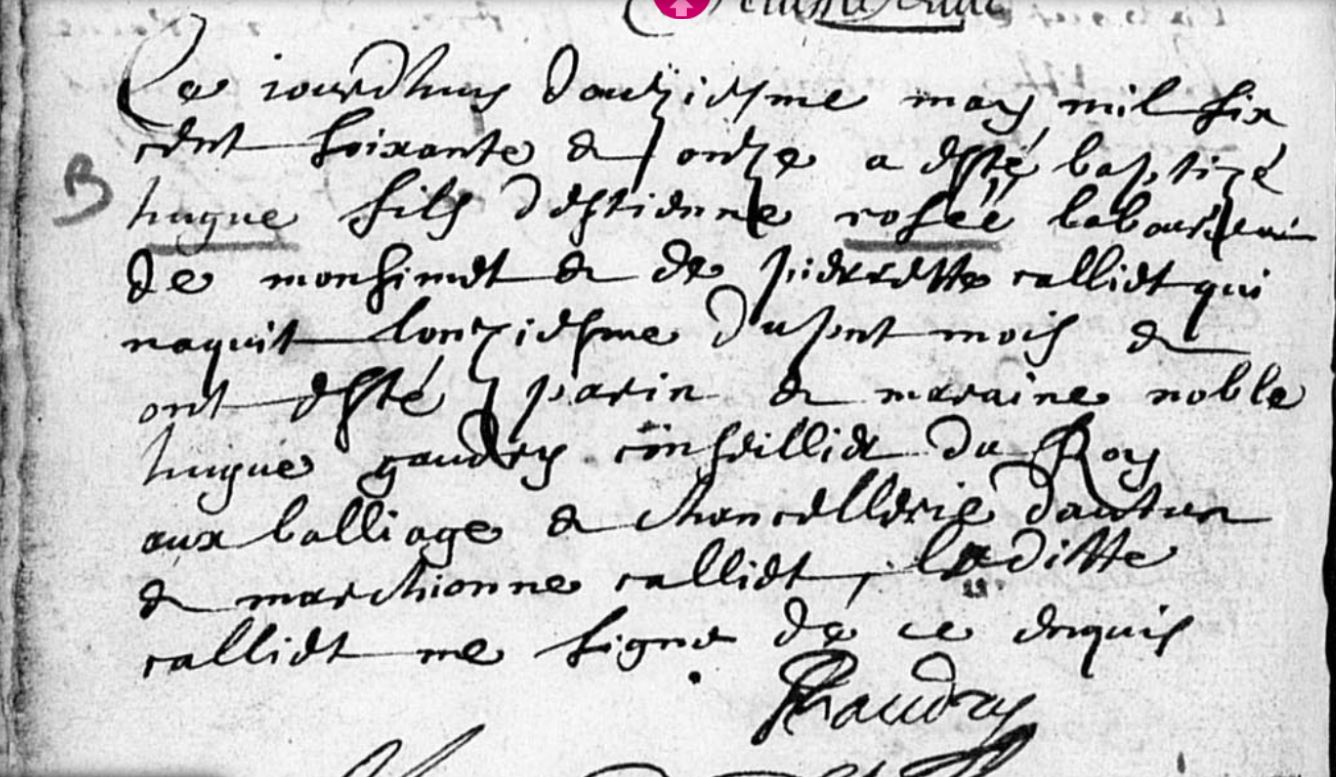 Ce iourdhuy douziesme may mil six
cent soixante & onze a esté baptizé
B
hugue fils d'estienne rosée laboureur
de monsimet & de pierrette calliet qui
naquit lonziesme dusent mois &
ont esté parin & maraine noble
hugue gaudry conseillier du Roy
aux balliage & chancellerie dautun
& marchionne calliet, laditte
calliet ne signe de ce enquis
HGaudry